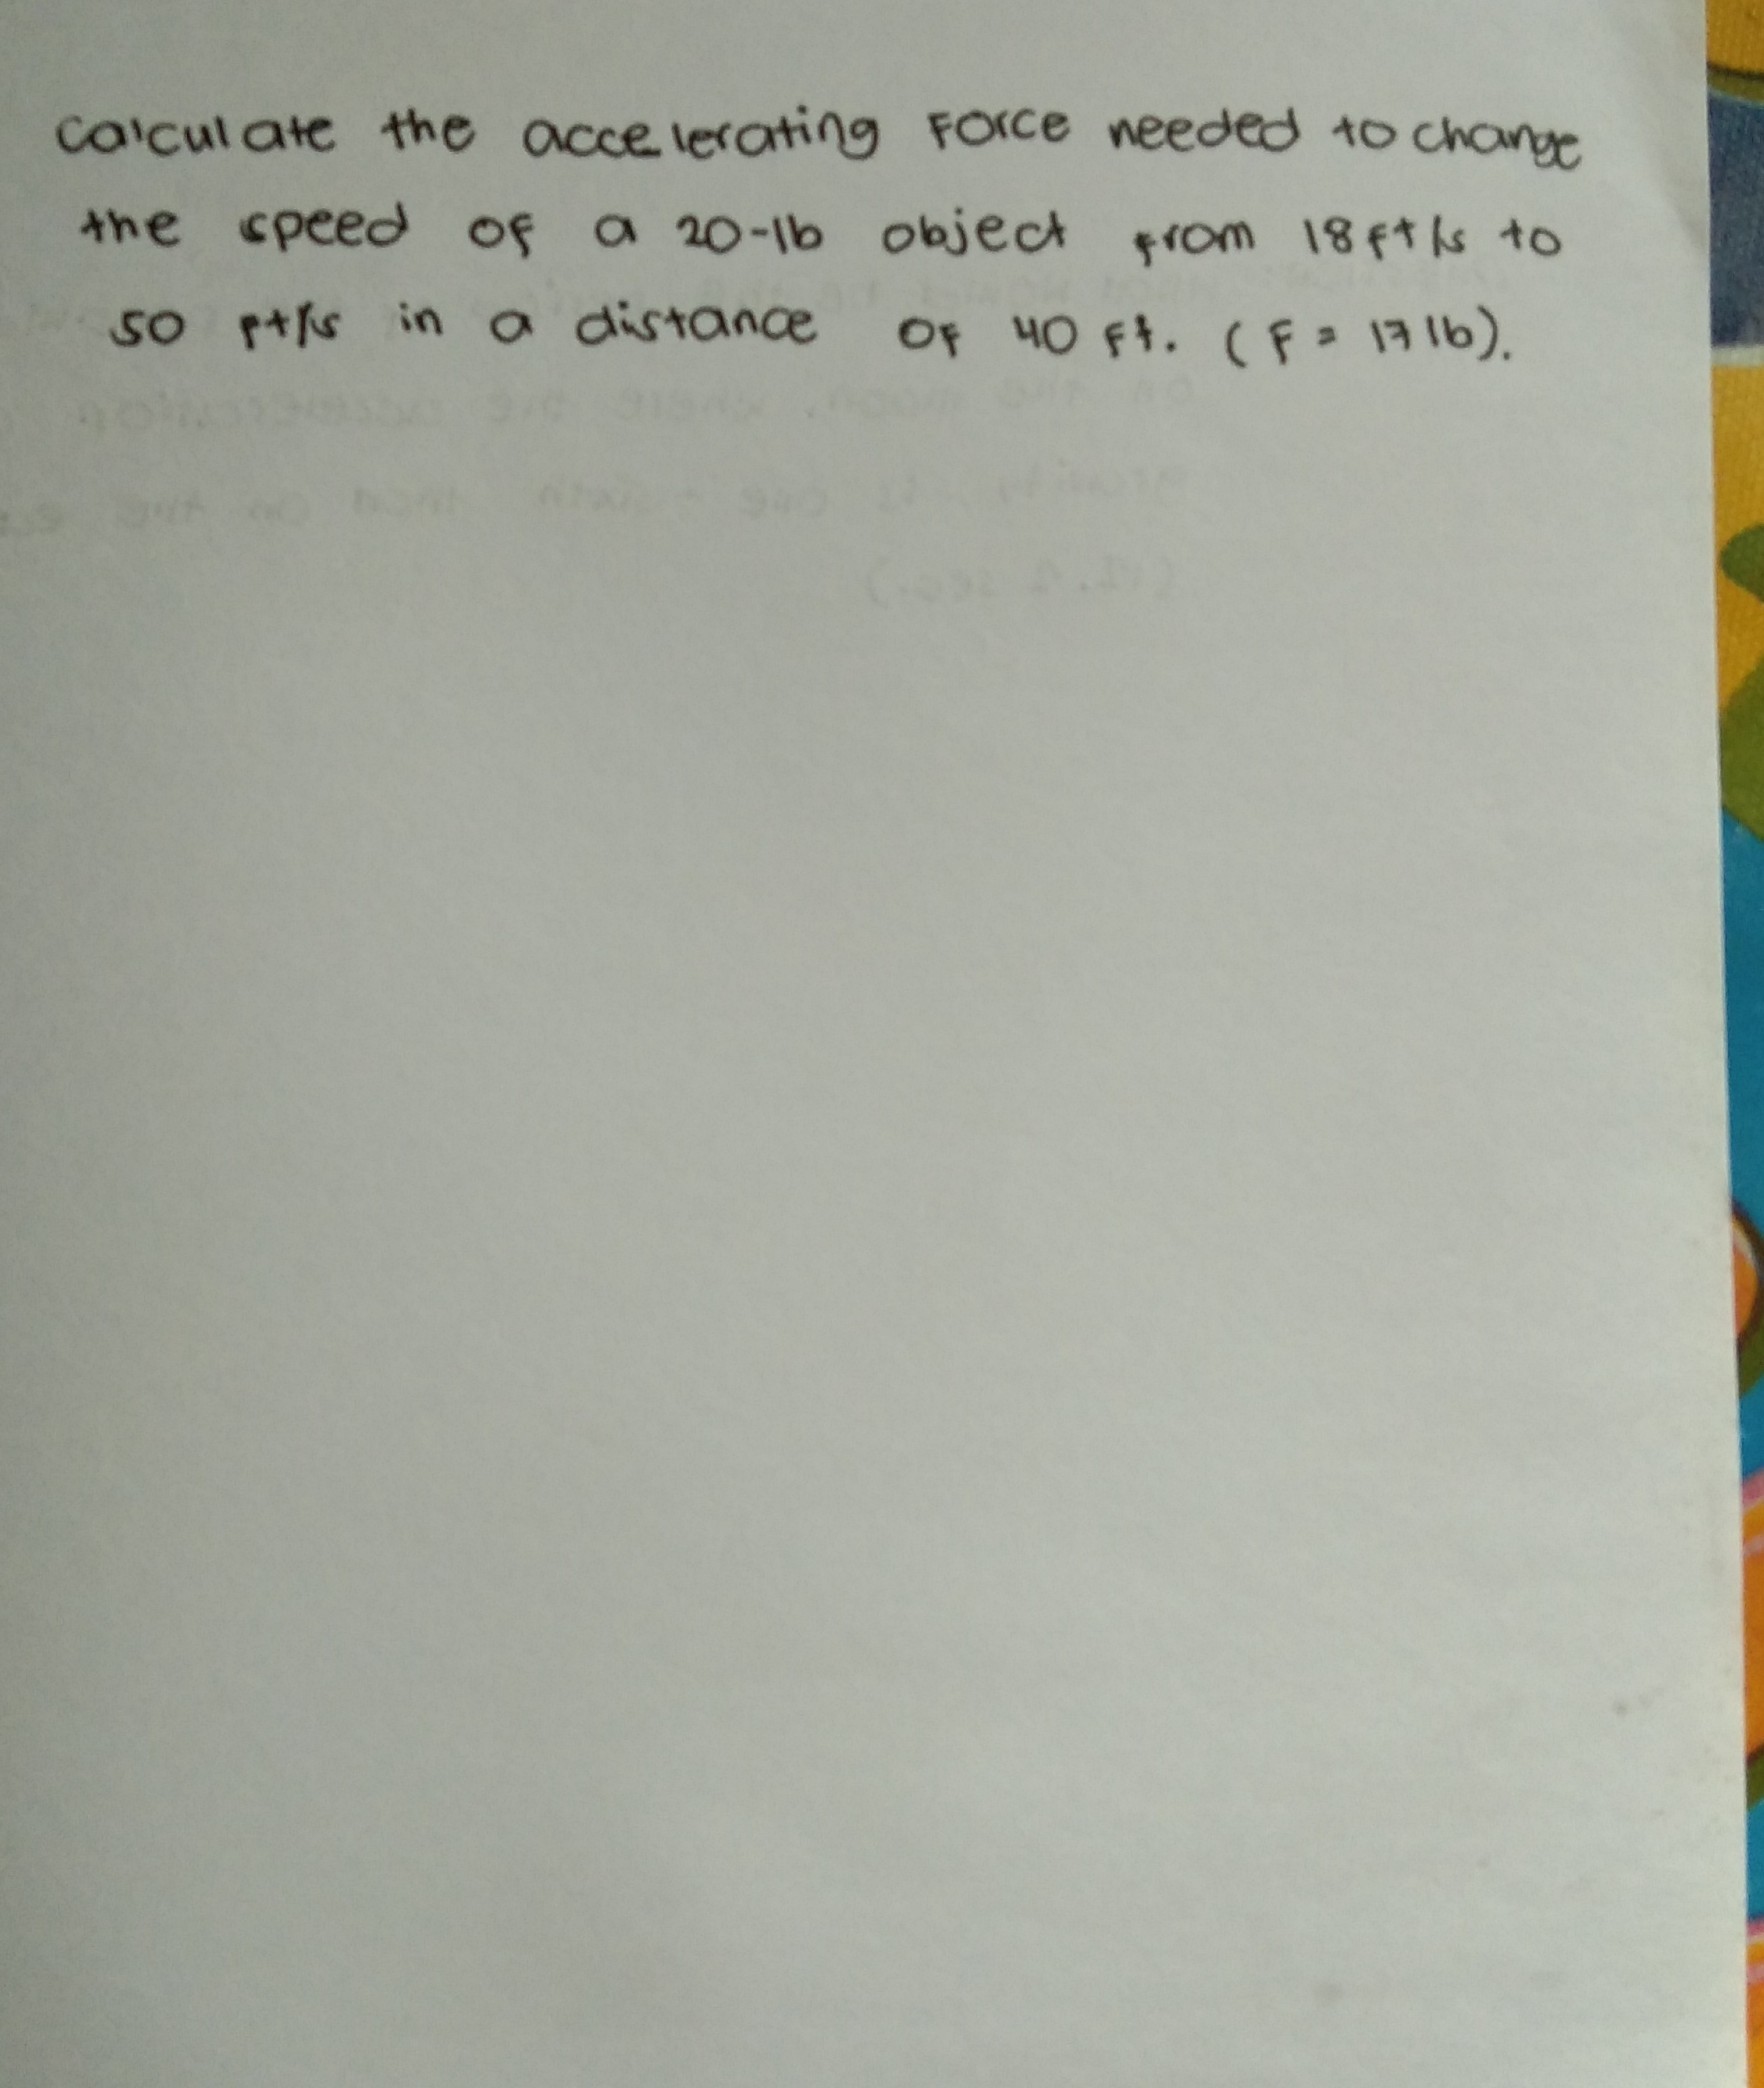 Calculate the accelerating Force needed to change
the speed of a 20-lb object from 18ft/s to
50 ft/s in a distance of 40 ft. (F = 17 lb).